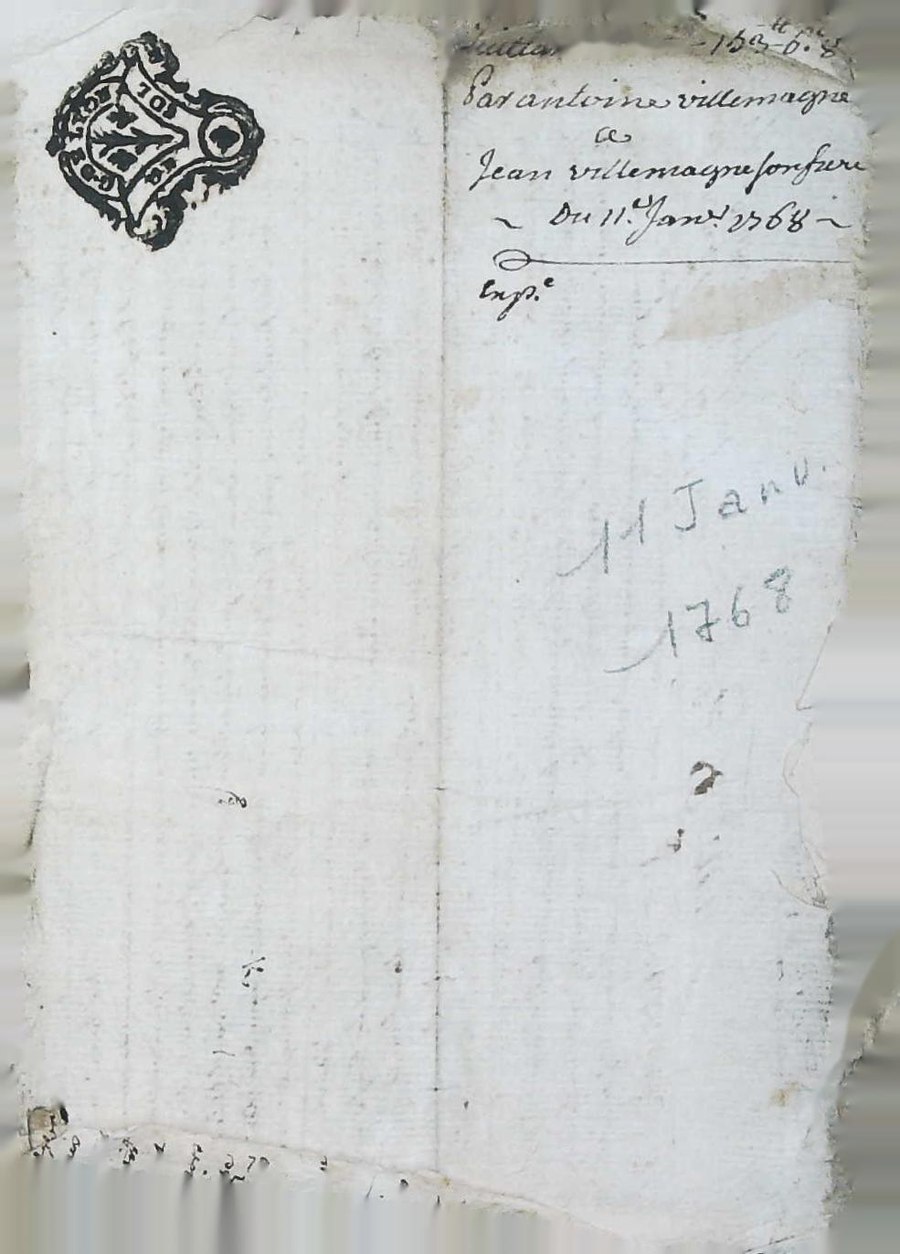 G. DE LYON
SOL
Par antoine villemagne
a
Jean villemagne son frere
~ Du 11.e Janvr. 1768 ~
Exp.e
11 Janv.
1768